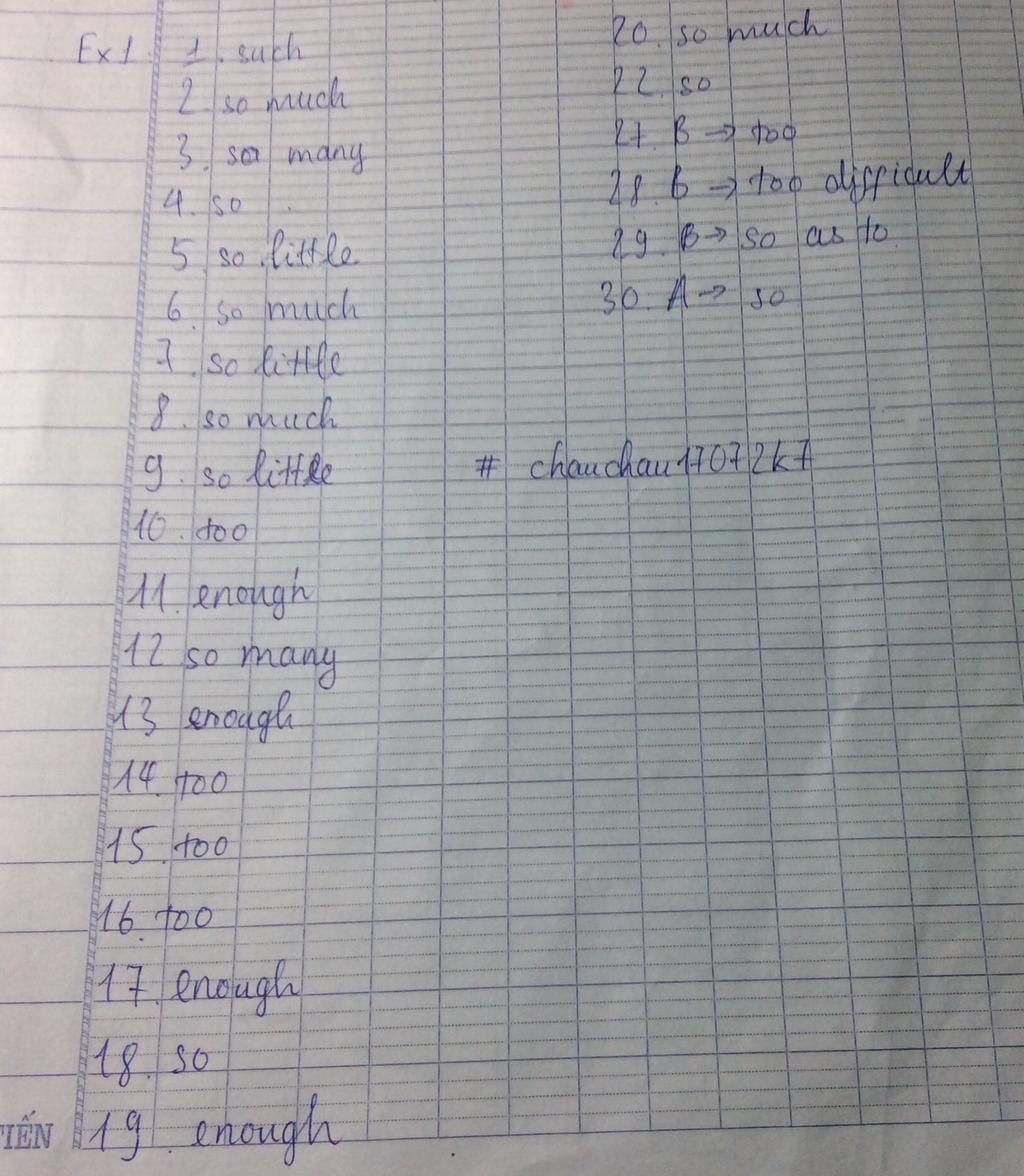 Ex1. 1. such
2 so much
3. so many
4. so
5. so little
6. so much
7. so little
8. so much
9. so little
10. too
11. enough
12 so many
13 enough
14. too
15. too
16. too
17. enough
18. so
19. enough
20. so much
22. so
27. B → too
28. B → too difficult
29. B → so as to
30. A → so
# chauchau17072k7
TIẾN